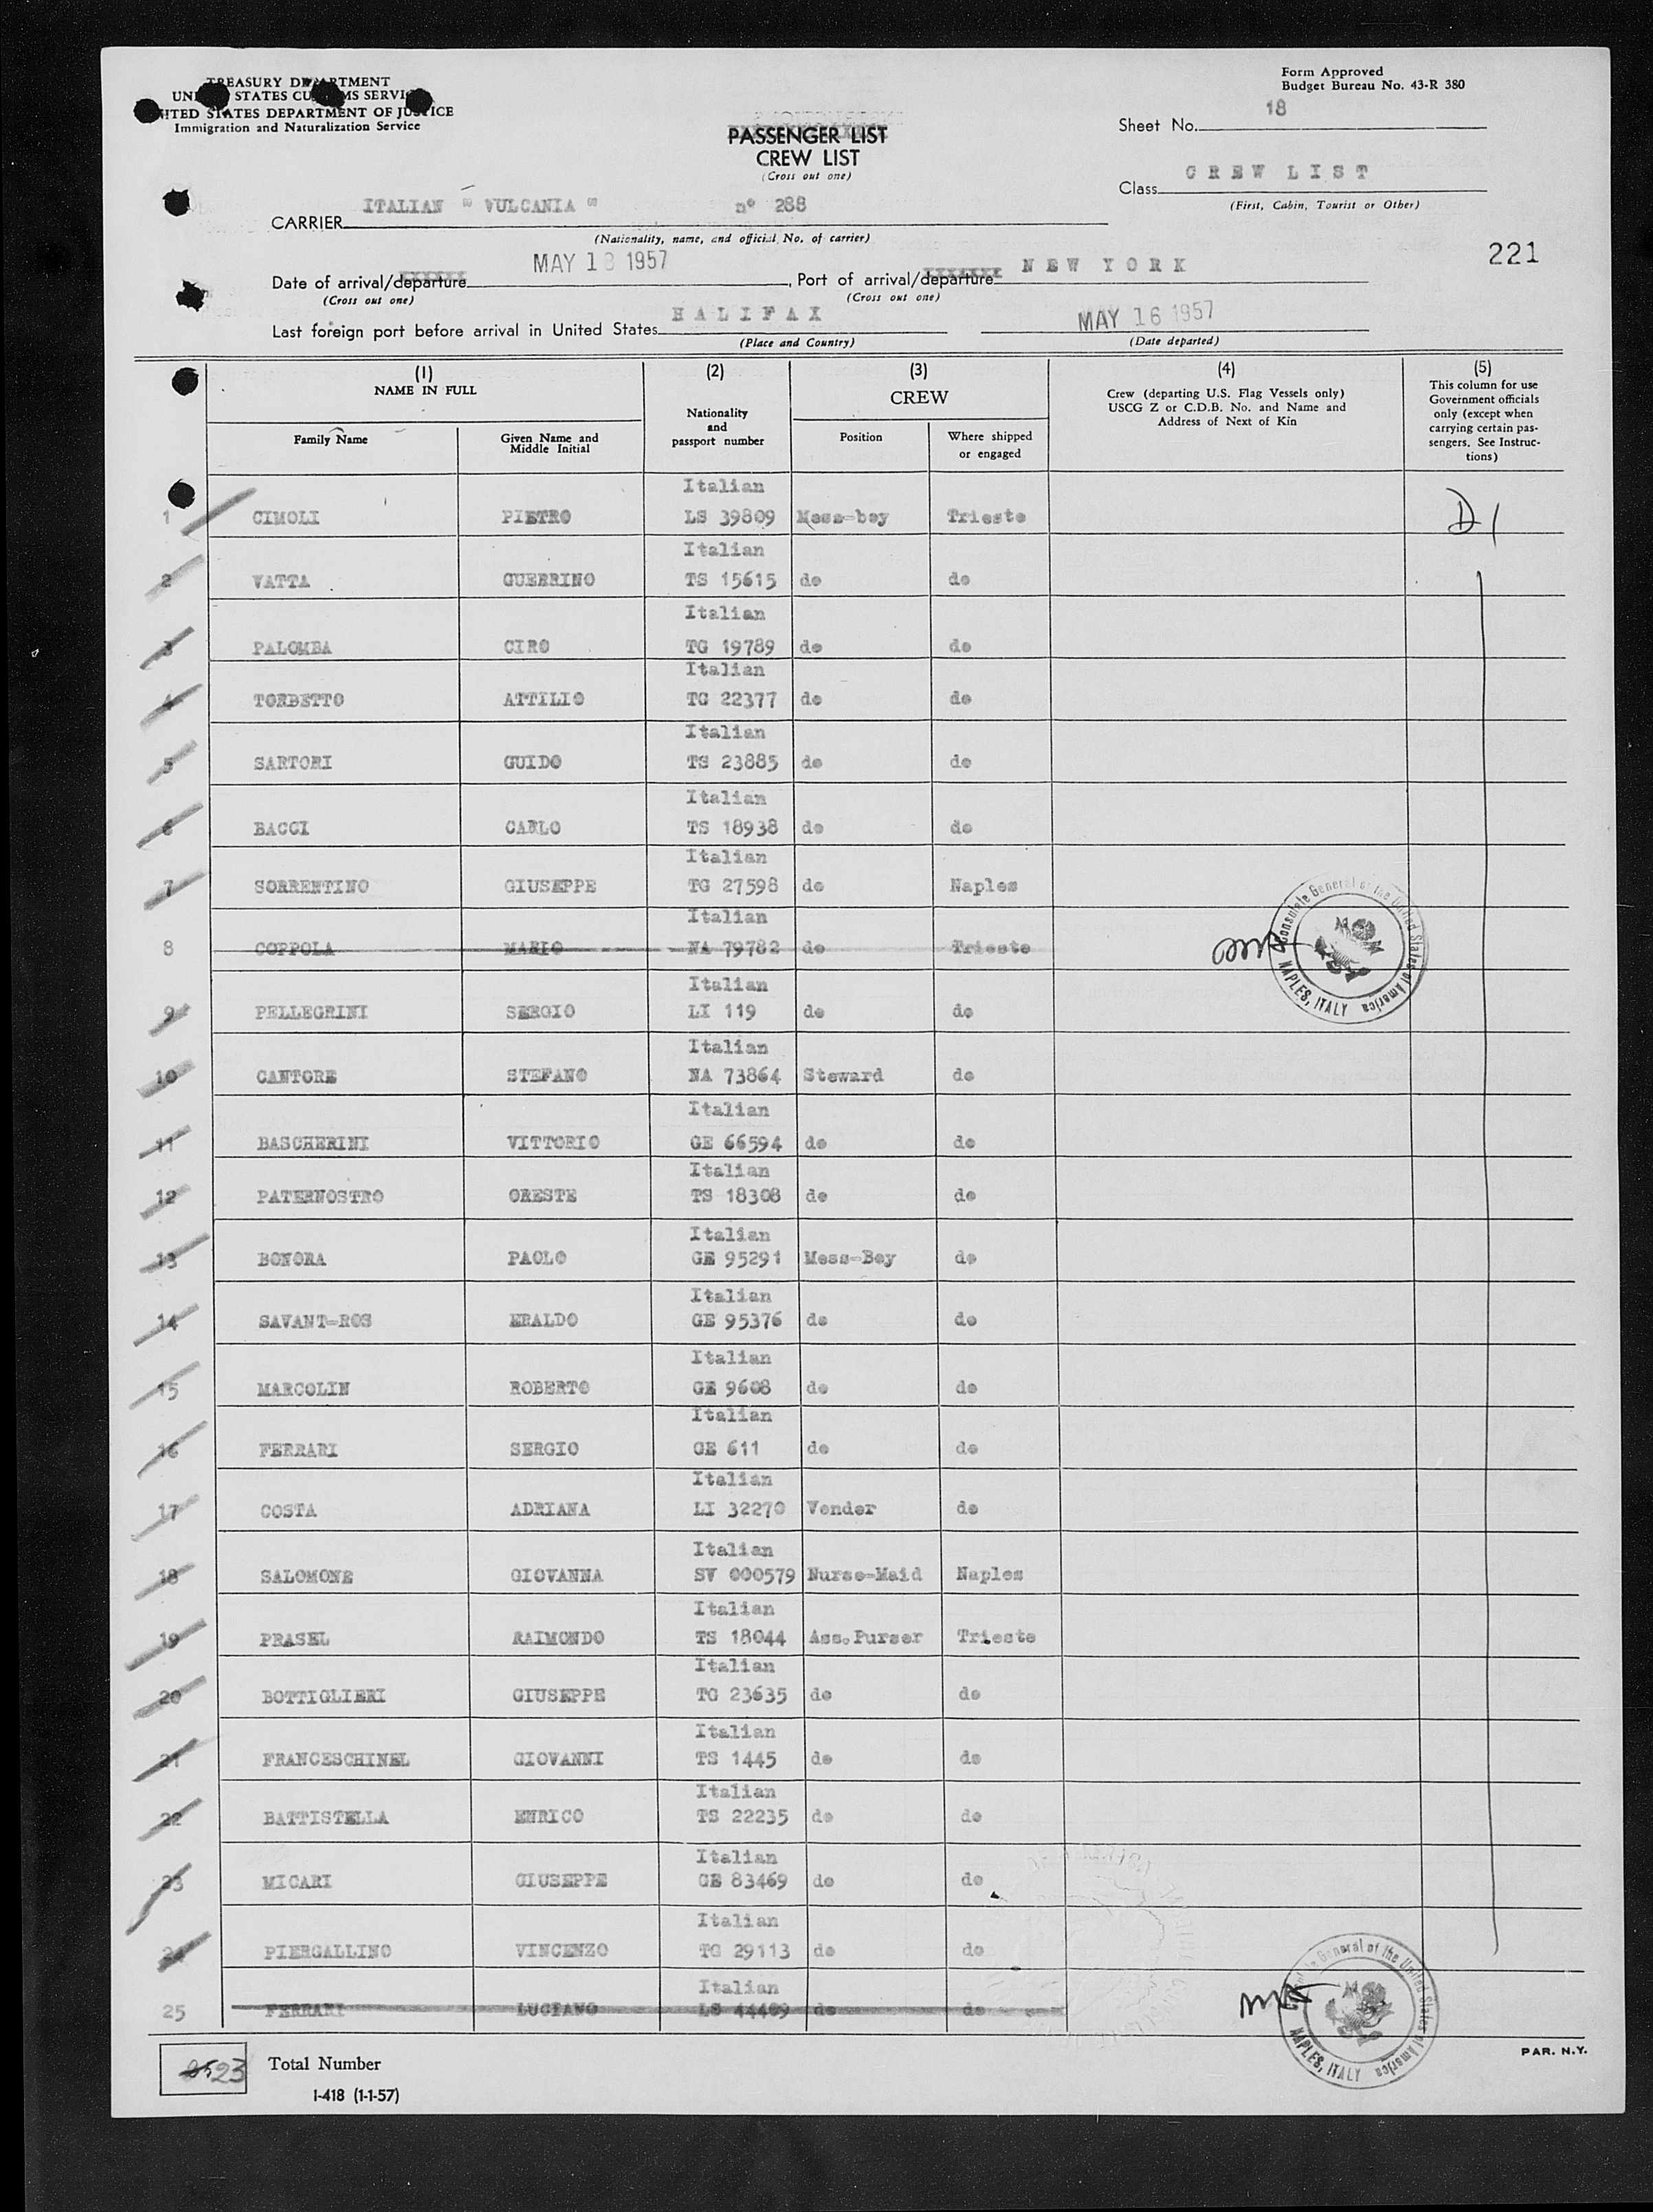 TREASURY DEPARTMENT
UNITED STATES CUSTOMS SERVICE
UNITED STATES DEPARTMENT OF JUSTICE
Immigration and Naturalization Service
Form Approved
Budget Bureau No. 43-R 380
PASSENGER LIST
CREW LIST
(Cross out one)
Sheet No. 18
Class CREW LIST
(First, Cabin, Tourist or Other)
CARRIER ITALIAN " VULCANIA " n° 288
(Nationality, name, and official No. of carrier)
221
Date of arrival/departure MAY 18 1957, Port of arrival/departure NEW YORK
(Cross out one) (Cross out one)
Last foreign port before arrival in United States HALIFAX MAY 16 1957
(Place and Country) (Date departed)
(1) (2) (3) (4) (5)
NAME IN FULL
Family Name
Given Name and
Middle Initial
Nationality
and
passport number
CREW
Position
Where shipped
or engaged
Crew (departing U.S. Flag Vessels only)
USCG Z or C.D.B. No. and Name and
Address of Next of Kin
This column for use
Government officials
only (except when
carrying certain pas-
sengers. See Instruc-
tions)
Italian
1 CIMOLI PIETRO LS 39809 Mess-boy Trieste D1
Italian
2 VATTA GUERRINO TS 15615 do do
Italian
3 PALOMBA CIRO TG 19789 do do
Italian
4 TORBETTO ATTILIO TG 22377 do do
Italian
5 SARTORI GUIDO TS 23885 do do
Italian
6 BACCI CARLO TS 18938 do do
Italian
7 SORRENTINO GIUSEPPE TG 27598 do Naples
Italian
8 COPPOLA MARIO NA 79782 do Trieste
Consulate General of the United States of America
NAPLES, ITALY
Italian
9 PELLEGRINI SERGIO LI 119 do do
Italian
10 CANTORE STEFANO NA 73864 Steward do
Italian
11 BASCHERINI VITTORIO GE 66594 do do
Italian
12 PATERNOSTRO ORESTE TS 18308 do do
Italian
13 BONORA PAOLO GE 95291 Mess-Boy do
Italian
14 SAVANT-ROS ERALDO GE 95376 do do
Italian
15 MARCOLIN ROBERTO GE 9608 do do
Italian
16 FERRARI SERGIO GE 611 do do
Italian
17 COSTA ADRIANA LI 32270 Vender do
Italian
18 SALOMONE GIOVANNA SV 000579 Nurse-Maid Naples
Italian
19 PRASEL RAIMONDO TS 18044 Ass.Purser Trieste
Italian
20 BOTTIGLIERI GIUSEPPE TG 23635 do do
Italian
21 FRANCESCHINEL GIOVANNI TS 1445 do do
Italian
22 BATTISTELLA ENRICO TS 22235 do do
Italian
23 MICARI GIUSEPPE GE 83469 do do
Italian
24 PIERGALLINO VINCENZO TG 29113 do do
Italian
25 FERRARI LUCIANO LS 44409 do do
Consulate General of the United States of America
NAPLES, ITALY
25 23 Total Number
I-418 (1-1-57)
PAR. N.Y.